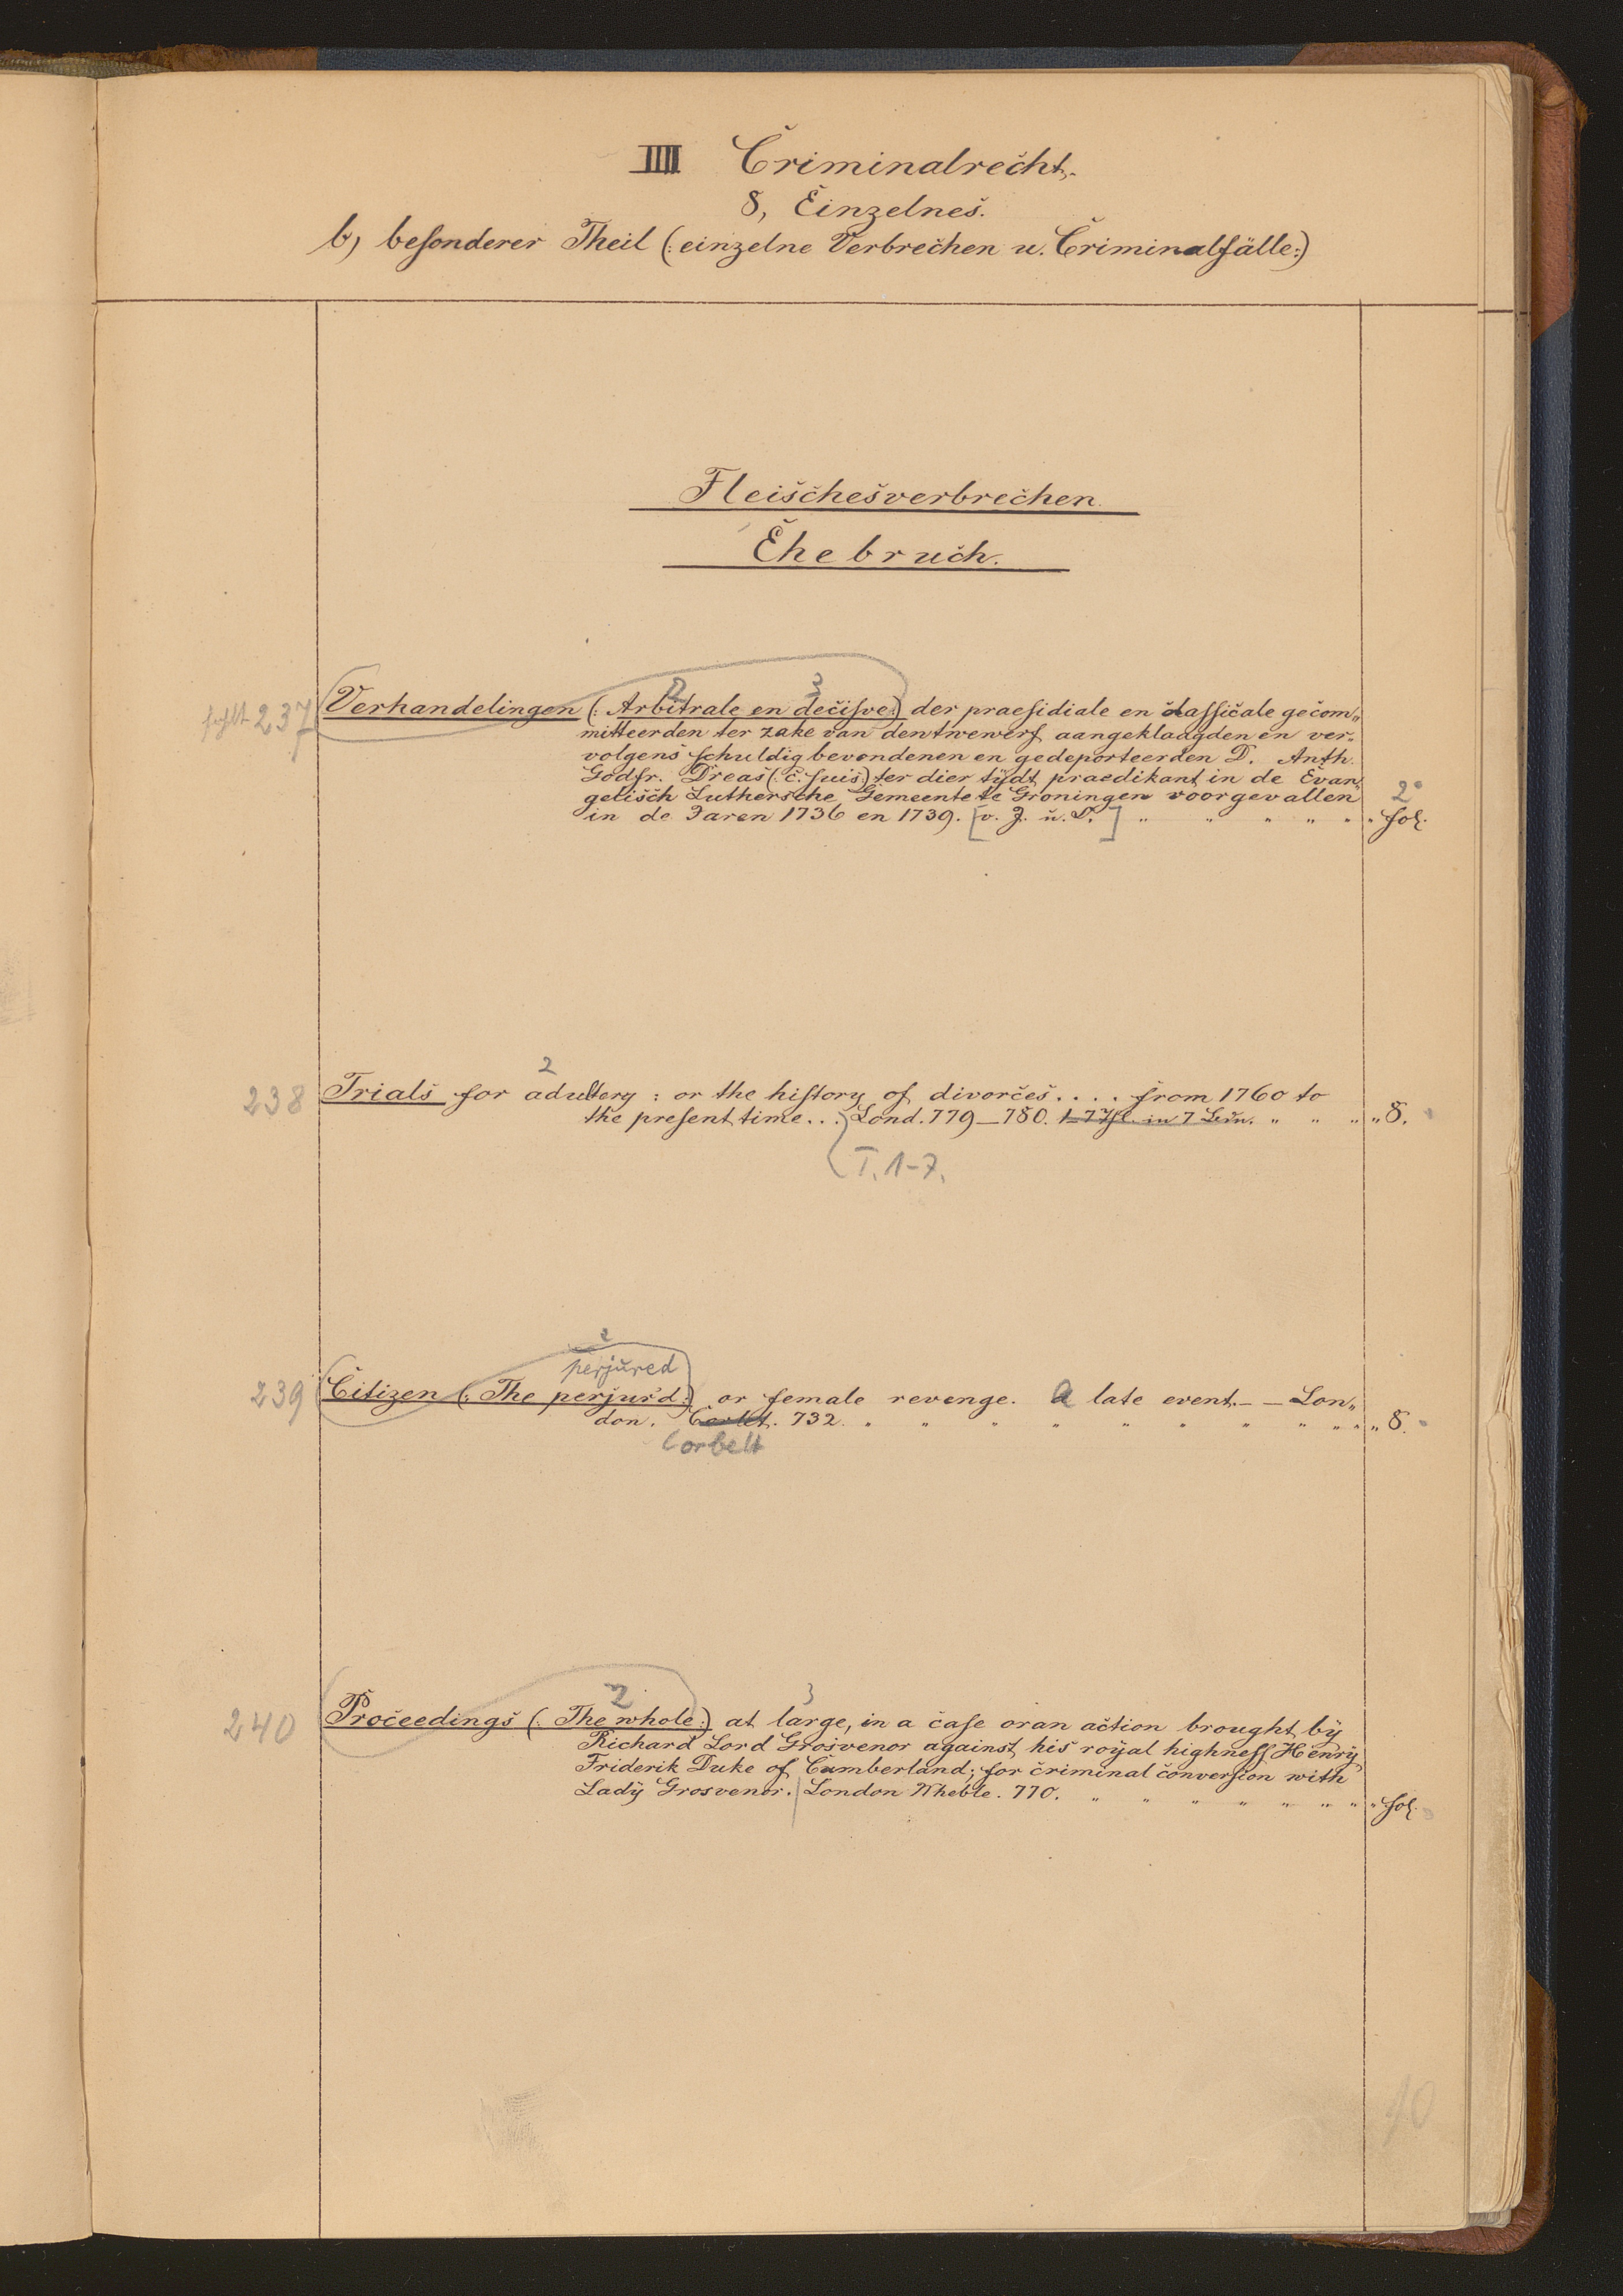 IIII Criminalrecht.
8, Einzelnes.
b) besonderer Theil (: einzelne Verbrechen u. Criminalfälle:)
Fleischesverbrechen.
Ehebruch.
2 3
fehlt 237 Verhandelingen (: Arbitrale en decisve:) der praesidiale en classicale gecom„
mitteerden ter zake van den twewerf aangeklaagden en ver„
volgens schuldig bevondenen en gedeporteerden D. Anth.
Godfr. Dreas (: c. suis:) ter dier tÿdt praedikant in de Evan„
gelisch Luthersche Gemeente te Groningen voorgevallen 2°
in de Jaren 1736 en 1739. [v. J. u. D.] „ „ „ „ „ „ fol.
2
238 Trials for adultery : or the history of divorces . . . . from 1760 to
the present time . . . Lond. 779–780. 1–7 in 7 „ „ „ „ 8.
T. 1–7.
2
perjured
239 Citizen (: The perjur'd:) or female revenge. A late event. – – Lon„
don. 732. „ „ „ „ „ „ „ „ „ „ „ 8.
Corbett
2 3
240 Proceedings (: The whole:) at large, in a case or an action brought bÿ
Richard Lord Grosvenor against his roÿal highness Henrÿ
Friderik Duke of Cumberland; for criminal conversion with
Ladÿ Grosvenor. | London Wheble. 770. „ „ „ „ „ „ „ „ fol.
10